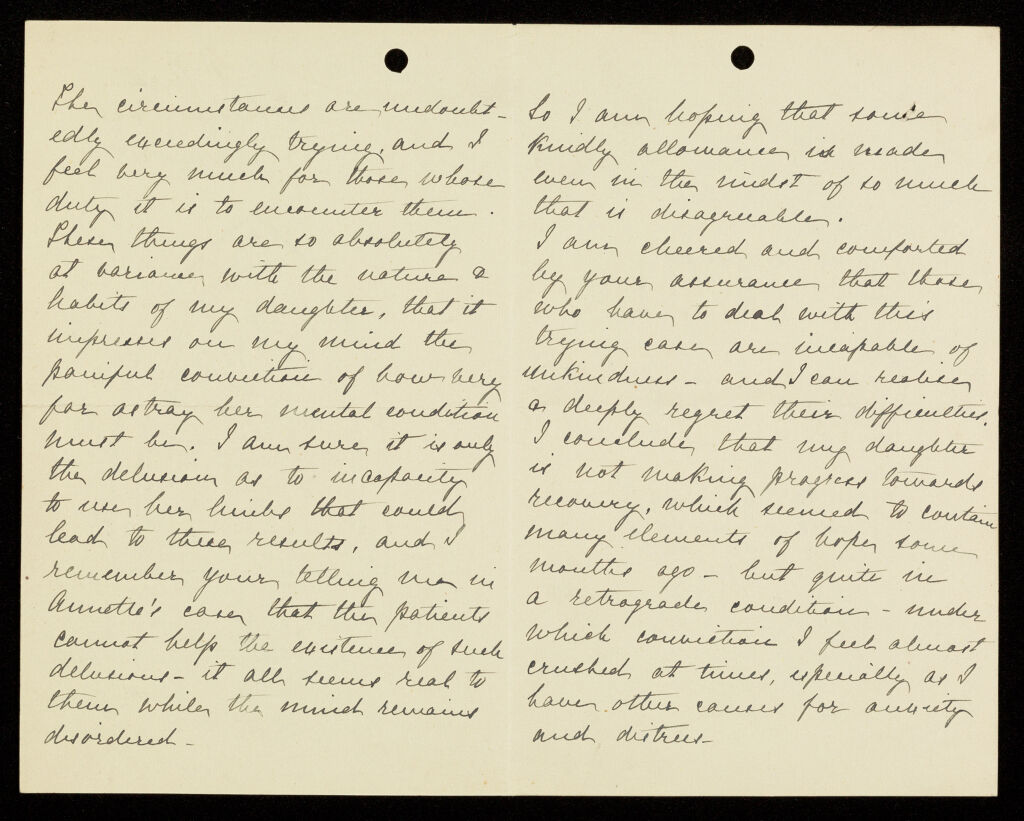 The circumstances are undoubt-
edly exceedingly trying, and I
feel very much for those whose
duty it is to encounter them.
These things are so absolutely
at variance with the nature &
habits of my daughter, that it
impresses on my mind the
painful conviction of how very
far astray her mental condition
must be. I am sure it is only
the delusion as to incapacity
to use her limbs that could
lead to these results, and I
remember your telling me in
Annette's case that the patients
cannot help the existence of such
delusions - it all seems real to
them while the mind remains
disordered -
So I am hoping that some
kindly allowance is made
even in the midst of so much
that is disagreeable.
I am cheered and comforted
by your assurance that those
who have to deal with this
trying case are incapable of
unkindness - and I can realise
& deeply regret their difficulties.
I conclude that my daughter
is not making progress towards
recovery, which seemed to contain
many elements of hope some
months ago - but quite in
a retrograde condition - under
which conviction I feel almost
crushed at times, especially as I
have other causes for anxiety
and distress -